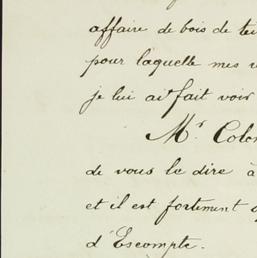 affaire de bois de tei
pour laquelle mes v
je lui ait fait voir
Mr. Color
de vous le dire à
et il est fortement q
d'Escompte.